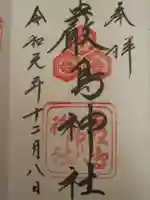 奉拝
嚴島神社
令和元年十二月八日